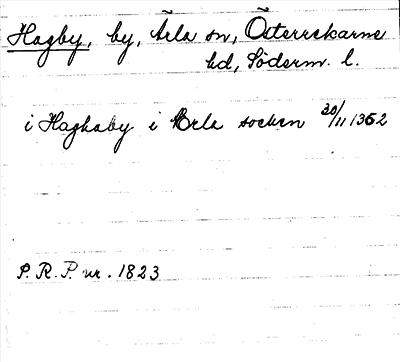 Hagby, by, Ärla sn, Österrekarne
hd, Söderm. l.
i Haghaby i Ærla socken 30/11 1352
S. R. P. nr. 1823